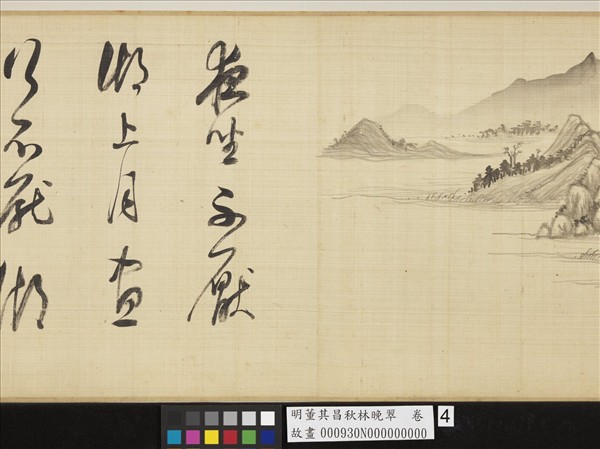 夜坐不厭
湖上月晝
行不厭湖
明董其昌秋林晚翠　卷
故畫000930N000000000
4